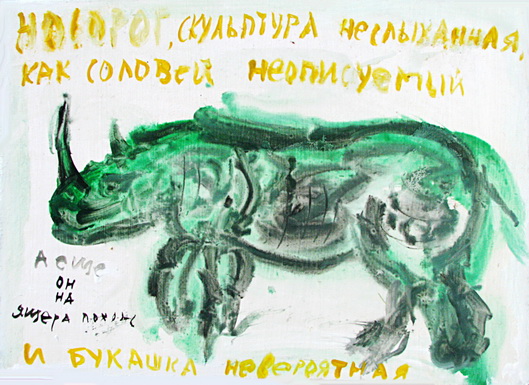 НОСОРОГ, СКУЛЬПТУРА НЕСЛЫХАННАЯ,
КАК СОЛОВЕЙ НЕОПИСУЕМЫЙ
А ЕЩЕ
ОН
НА
ЯЩЕРА ПОХОЖ
И БУКАШКА НЕВЕРОЯТНАЯ